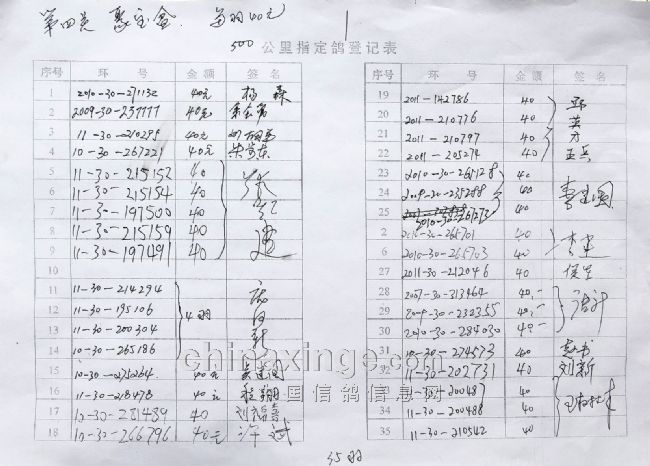 第四关 聚宝盆 每羽40元
500公里指定鸽登记表
序号 环 号 金 额 签 名
1 2010-30-271132 40元 杨森
2 2009-30-237777 40元
3 11-30-210295 40元
4 10-30-267221 40元
5 11-30-215152 40
6 11-30-215154 40
7 11-30-197500 40
8 11-30-215159 40
9 11-30-197491 40
10
11 11-30-214294
12 11-30-195106 4羽
13 11-30-200304
14 10-30-265186
15 10-30-270264 40元
16 11-30-218478 40元
17 10-30-281489 40
18 10-30-266796 40元 许斌
序号 环 号 金 额 签 名
19 2011-142786 40
20 2011-210776 40
21 2011-210797 40
22 2011-205274 40
23 2010-30-265128 40
24 2009-30-235288 40
25 2010-30-267273 40
2 2010-30-265701 40
6 2010-30-265703 40 李建
27 2011-30-212046 40
28 2007-30-313464 40.-
29 2009-30-232355 40.-
30 2010-30-284030 40.-
31 10-30-274573 40
32 11-30-202731 40 刘新
11-30-20048 40
34 11-30-200488 40
35 11-30-210542 40
35羽
chinaxinge.com
中国信鸽信息网